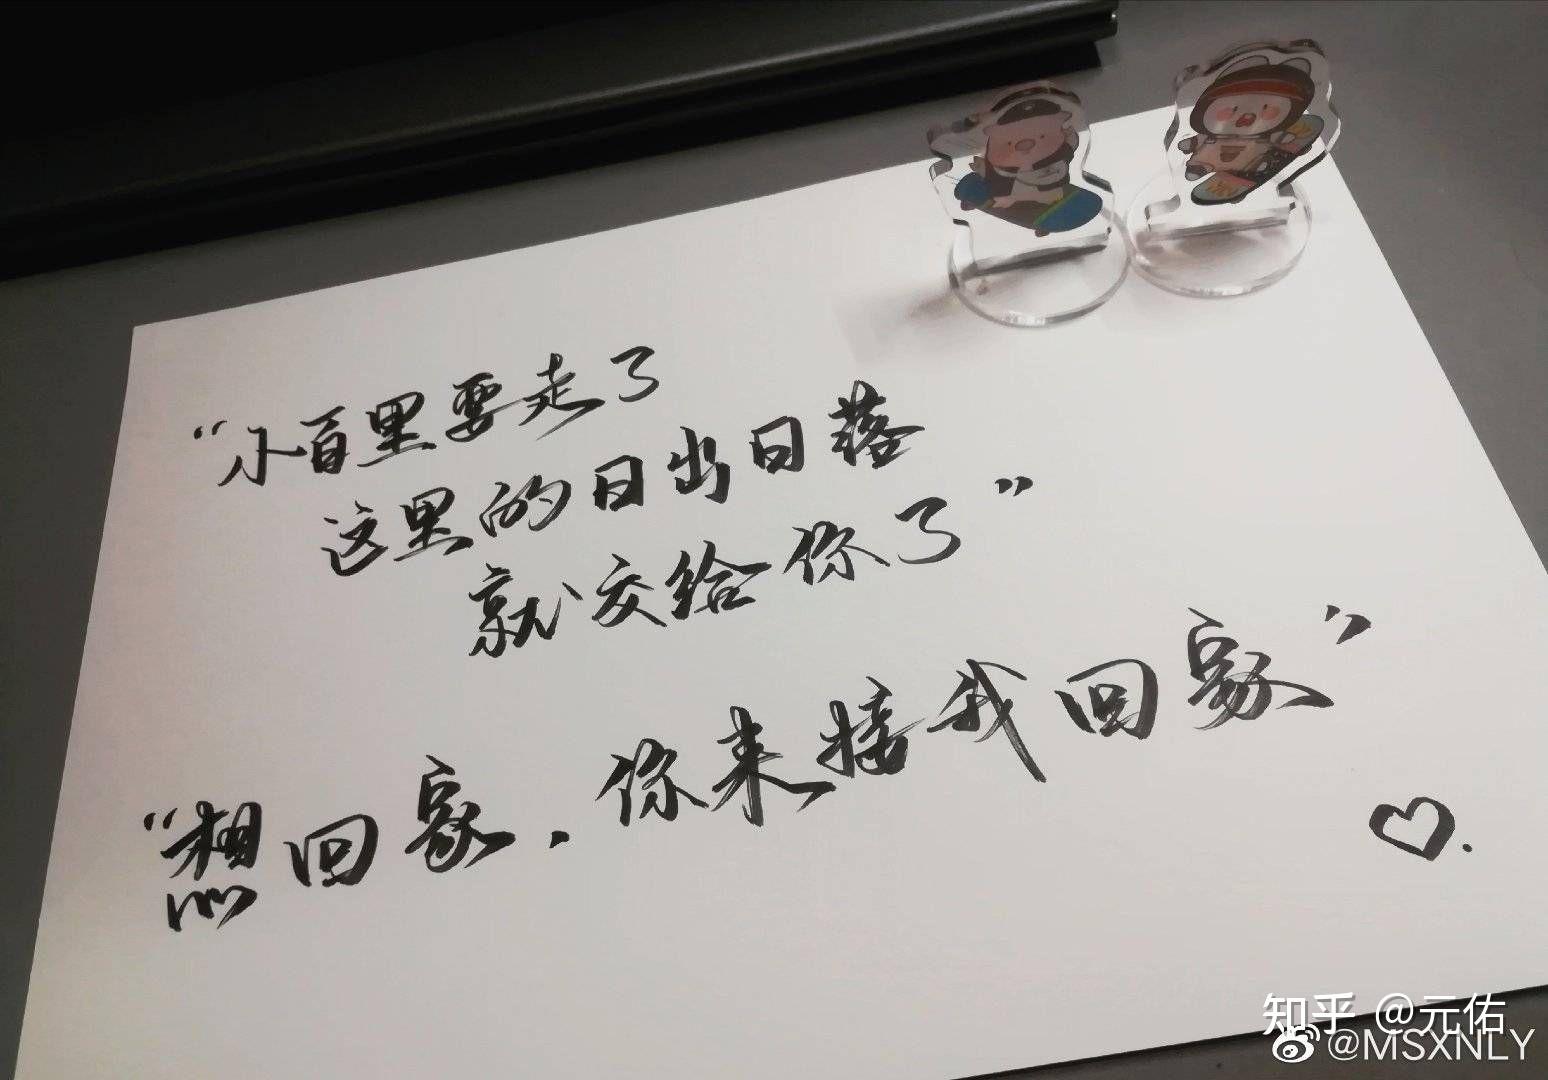 “小百里要走了
这里的日出日落
就交给你了”
“想回家，你来接我回家”
知乎 @元佑
@MSXNLY